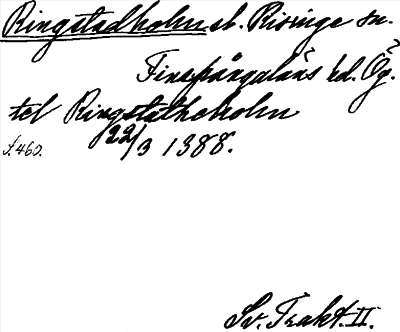 Ringstadholm sl. Risinge sn.
Finspångaläns hd. Ög.
tel Ringstathaholm
22/3 1388.
s. 460.
Sv. Trakt. II.